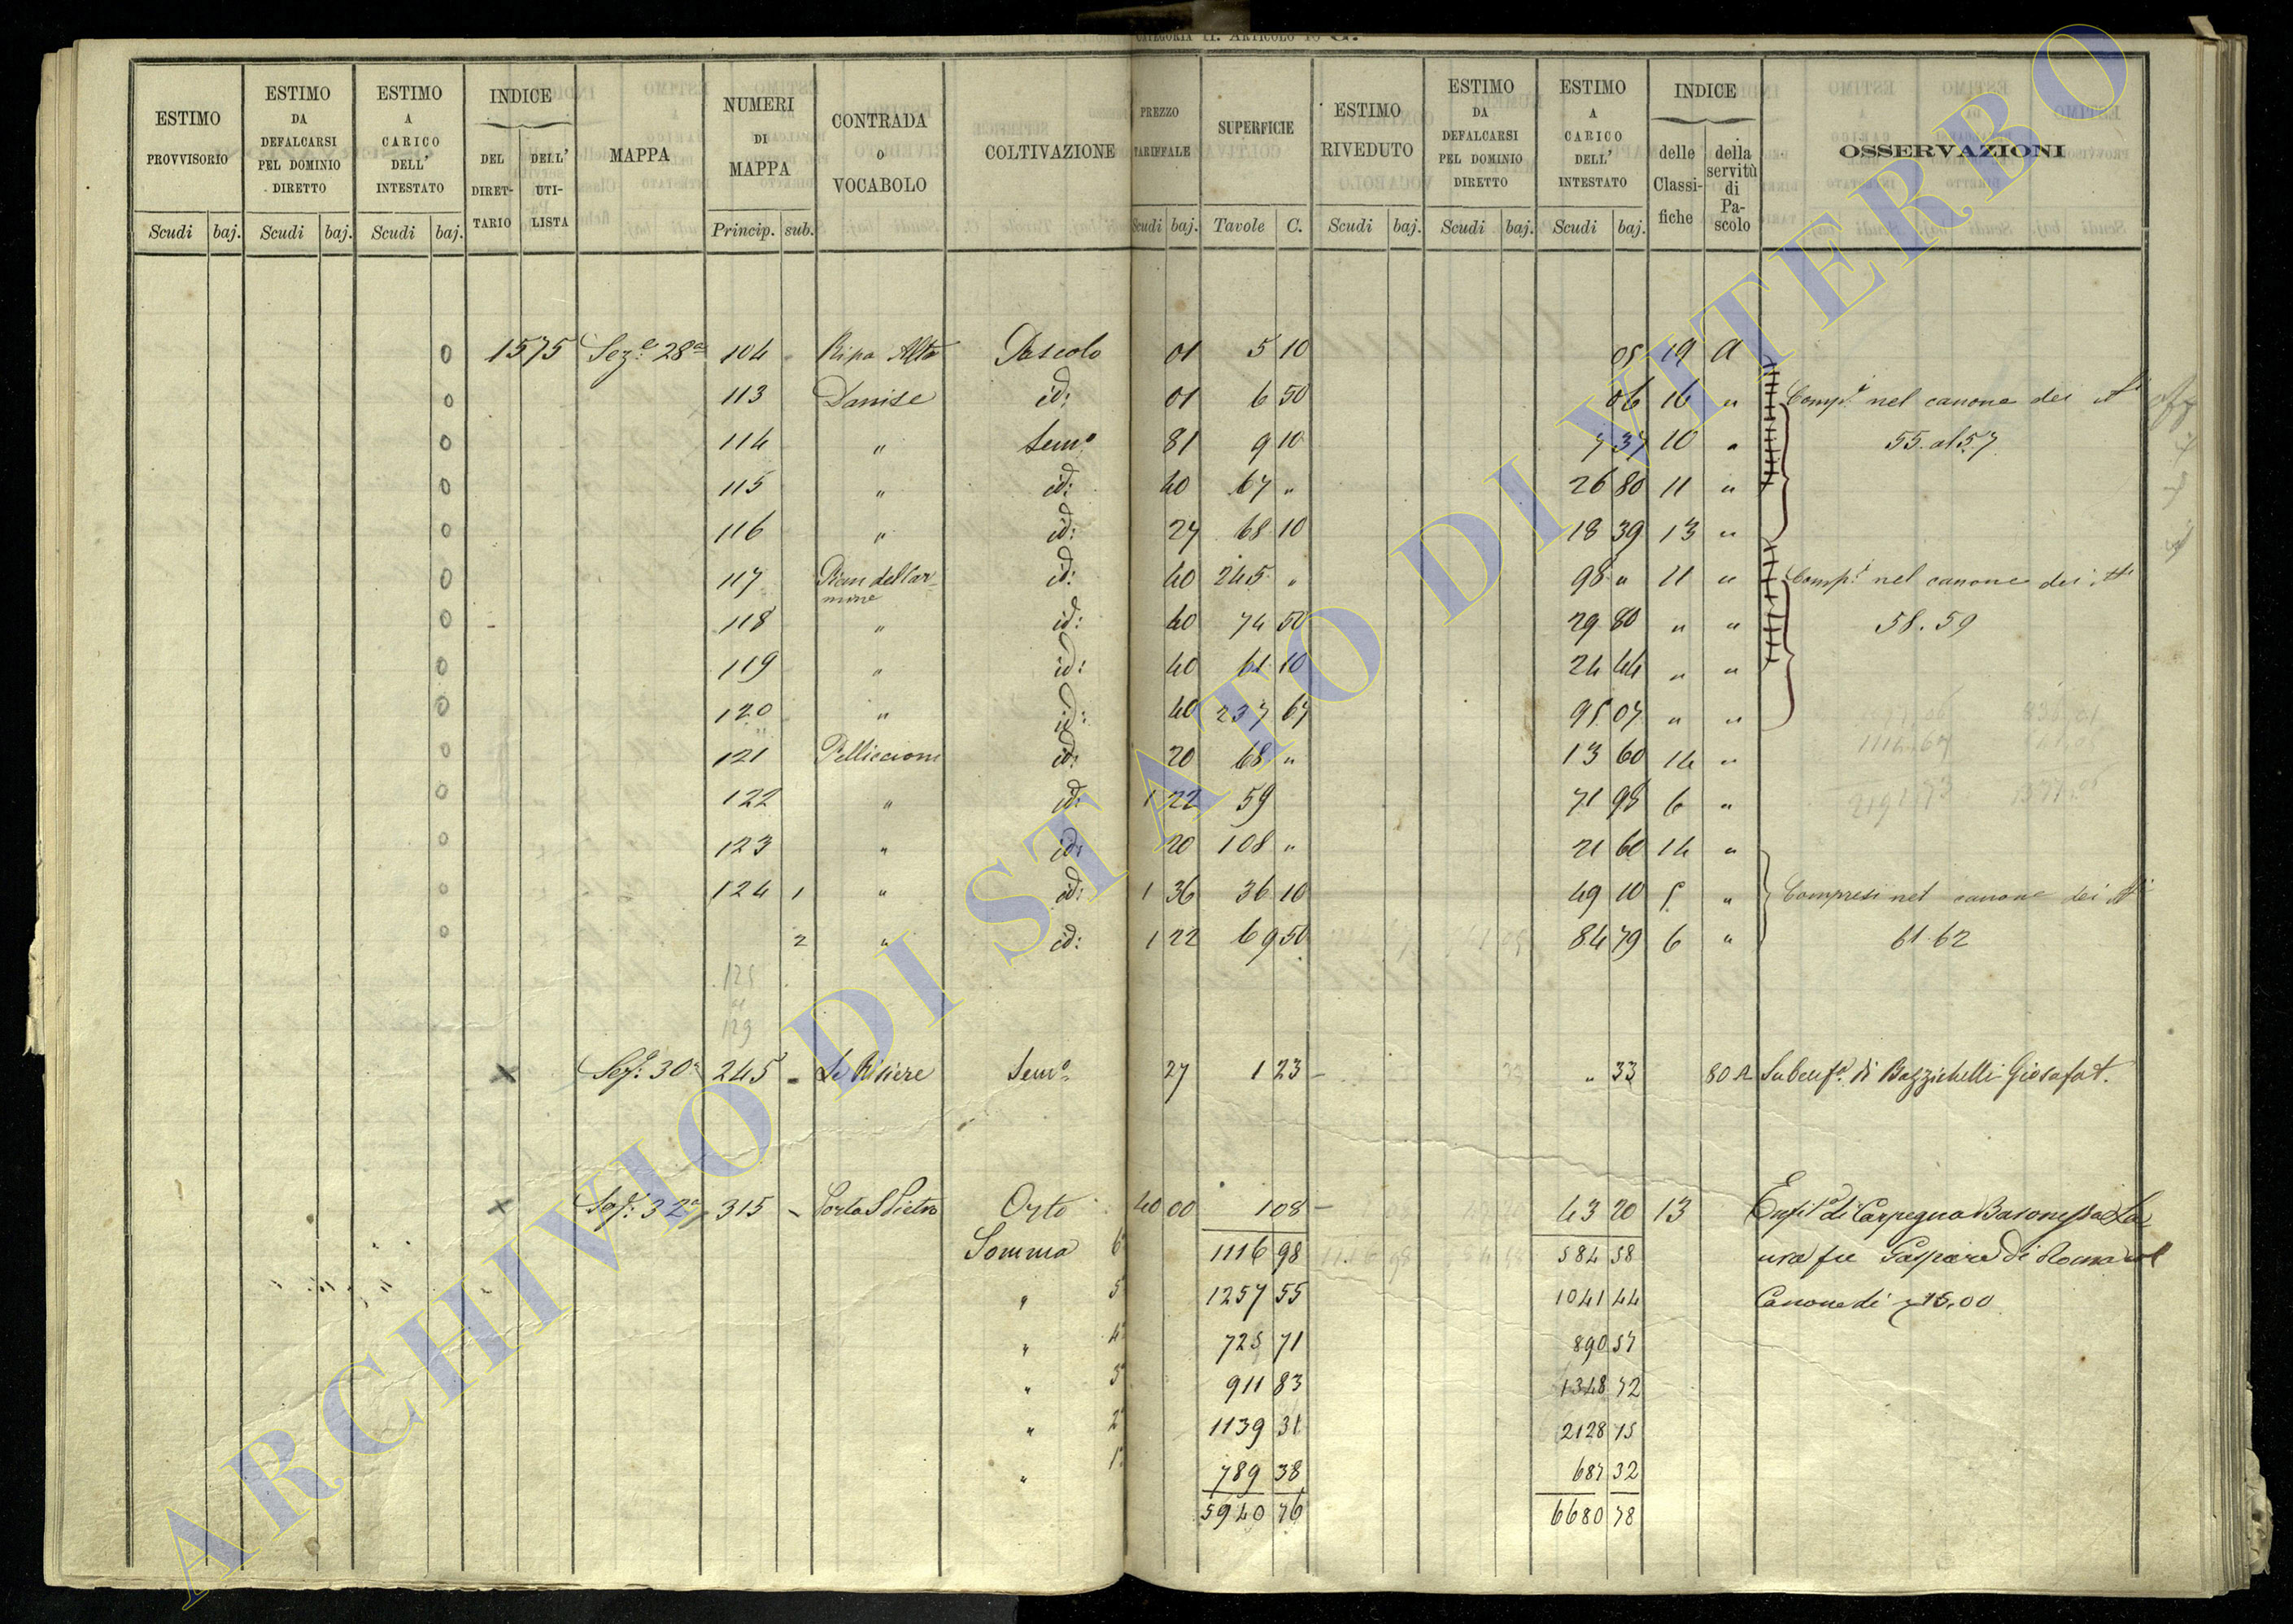 CATEGORIA II. ARTICOLO 10 G.
ESTIMO PROVVISORIO Scudi baj. ESTIMO DA DEFALCARSI PEL DOMINIO DIRETTO Scudi baj. ESTIMO A CARICO DELL' INTESTATO Scudi baj. INDICE DEL DIRET-TARIO DELL' UTI-LISTA MAPPA NUMERI DI MAPPA Princip. sub. CONTRADA O VOCABOLO COLTIVAZIONE PREZZO TARIFFALE Scudi baj. SUPERFICIE Tavole C. ESTIMO RIVEDUTO Scudi baj. ESTIMO DA DEFALCARSI PEL DOMINIO DIRETTO Scudi baj. ESTIMO A CARICO DELL' INTESTATO Scudi baj. INDICE delle Classi-fiche della servitù di Pa-scolo OSSERVAZIONI
0 1575 Sez.e 28a 104 Ripa Alta Pascolo 01 5 10 05 19 A
0 113 Danise id: 01 6 50 06 16 " Comp.i nel canone dei Ni
0 114 " Sem.o 81 9 10 7 37 10 " 55 al 57
0 115 " id: 40 67 " 26 80 11 "
0 116 " id: 27 68 10 18 39 13 "
0 117 id: 40 245 " 98 " 11 " Comp.i nel canone dei Ni
0 118 " id: 40 74 50 29 80 " " 58. 59
0 119 " id: 40 61 10 24 44 " "
0 120 " id: 40 237 67 95 07 " "
0 121 Pelliccioni id: 20 68 " 13 60 14 "
0 122 " id: 1 22 59 71 98 6 "
0 123 " id: 20 108 " 21 60 14 "
0 124 1 " id: 1 36 36 10 49 10 5 " Compresi nel canone dei Ni
0 2 " id: 1 22 69 50 84 79 6 " 61 62
125
al
129
x Sez: 30a 245 - Le Risiere Sem.o 27 1 23 - " 33 80 A Subenf.a di Bazzichelli Giosafat.
x Sez: 32a 315 - Porta S Pietro Orto 40 00 1 08 - 43 20 13 Enfit.a di Carpegna Baronessa La-
Somma 6a 1116 98 584 58 ura fu Gaspare di Roma col
" 5 1257 55 1041 44 Canone di 15,00
" 4a 725 71 890 57
" 3a 911 83 1348 72
" 2a 1139 31 2128 15
" 1a 789 38 687 32
5940 76 6680 78
ARCHIVIO DI STATO DI VITERBO